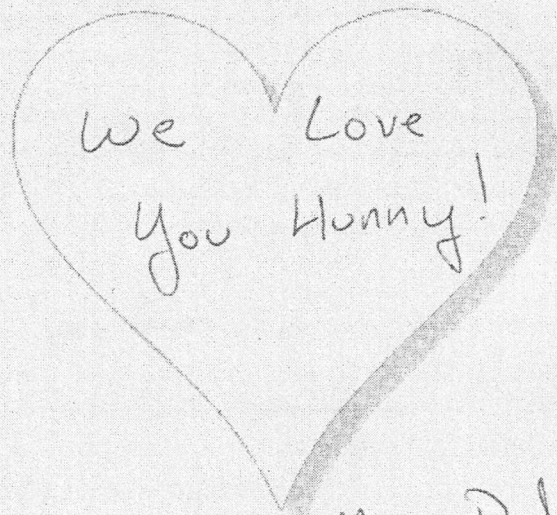 We Love
You Hunny!